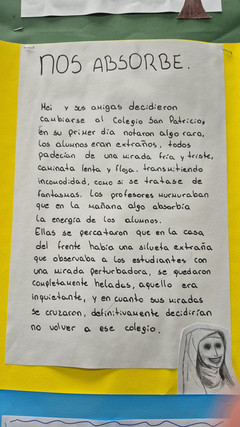 NOS ABSORBE.
Mei y sus amigas decidieron
cambiarse al Colegio San Patricio,
en su primer día notaron algo raro,
los alumnos eran extraños, todos
padecían de una mirada fría y triste,
caminata lenta y floja. transmitiendo
incomodidad, como si se tratase de
fantasmas. Los profesores murmuraban
que en la mañana algo absorbía
la energía de los alumnos.
Ellas se percataron que en la casa
del frente había una silueta extraña
que observaba a los estudiantes con
una mirada perturbadora, se quedaron
completamente heladas, aquello era
inquietante, y en cuanto sus miradas
se cruzaron, definitivamente decidirían
no volver a ese colegio.